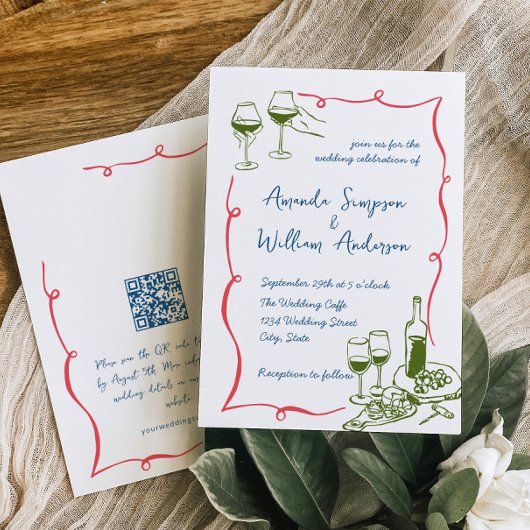 join us for the
wedding celebration of
Amanda Simpson
&
William Anderson
September 29th at 5 o'clock
The Wedding Caffe
1234 Wedding Street
City, State
Reception to follow
Please scan the QR code
by August 5th. More
wedding details on
website
yourwedding